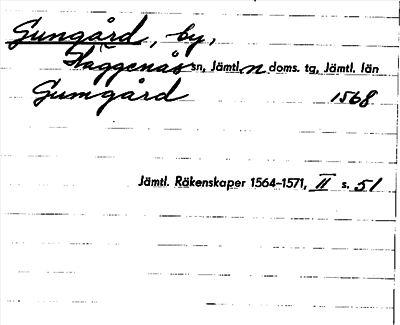 Gungård, by,
Häggenås sn, Jämtl. n doms. tg, Jämtl. län
Gumgård 1568
Jämtl. Räkenskaper 1564–1571, II s. 51